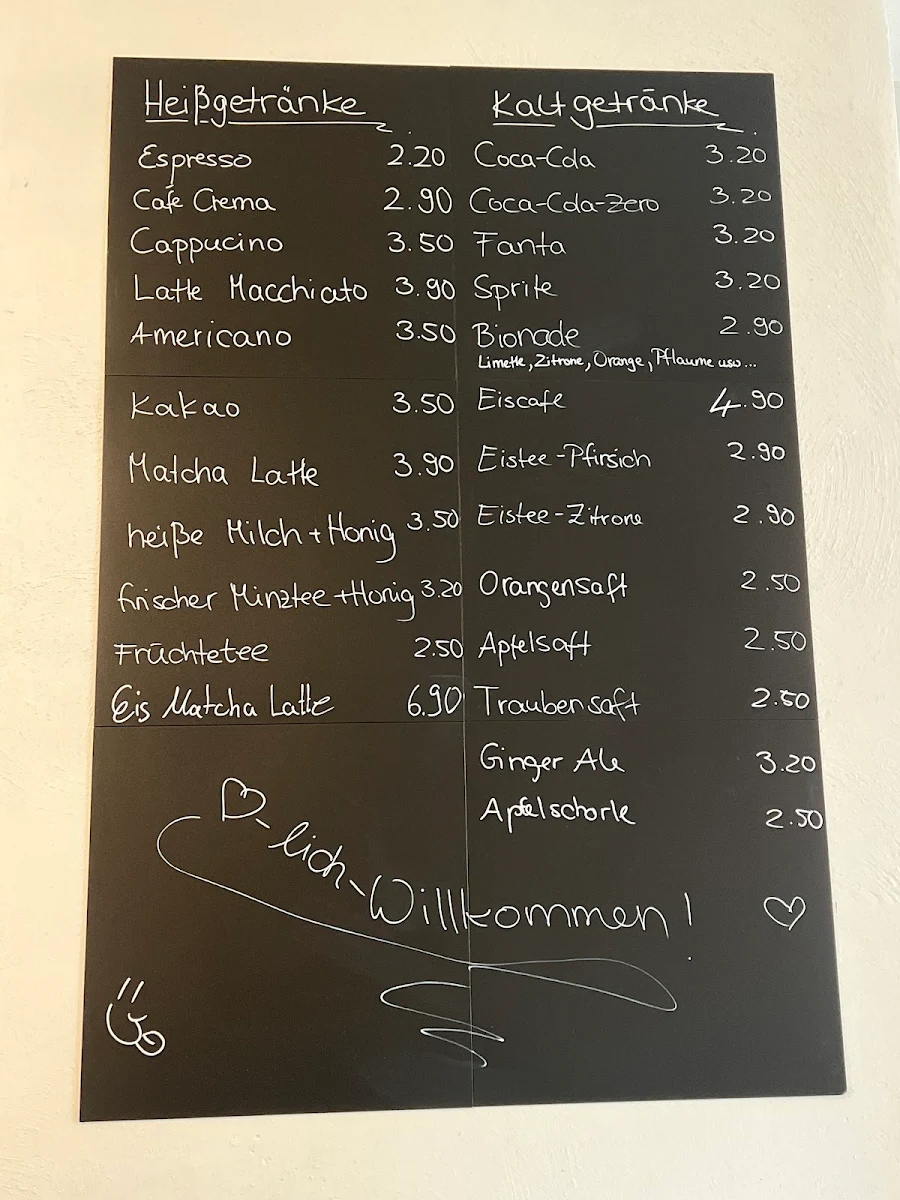 Heißgetränke
Espresso 2.20
Café Crema 2.90
Cappucino 3.50
Latte Macchiato 3.90
Americano 3.50
Kakao 3.50
Matcha Latte 3.90
heiße Milch + Honig 3.50
frischer Minztee + Honig 3.20
Früchtetee 2.50
Eis Matcha Latte 6.90
Kaltgetränke
Coca-Cola 3.20
Coca-Cola-Zero 3.20
Fanta 3.20
Sprite 3.20
Bionade 2.90
Limette, Zitrone, Orange, Pflaume usw...
Eiscafe 4.90
Eistee-Pfirsich 2.90
Eistee-Zitrone 2.90
Orangensaft 2.50
Apfelsaft 2.50
Traubensaft 2.50
Ginger Ale 3.20
Apfelschorle 2.50
♡-lich-Willkommen! ♡